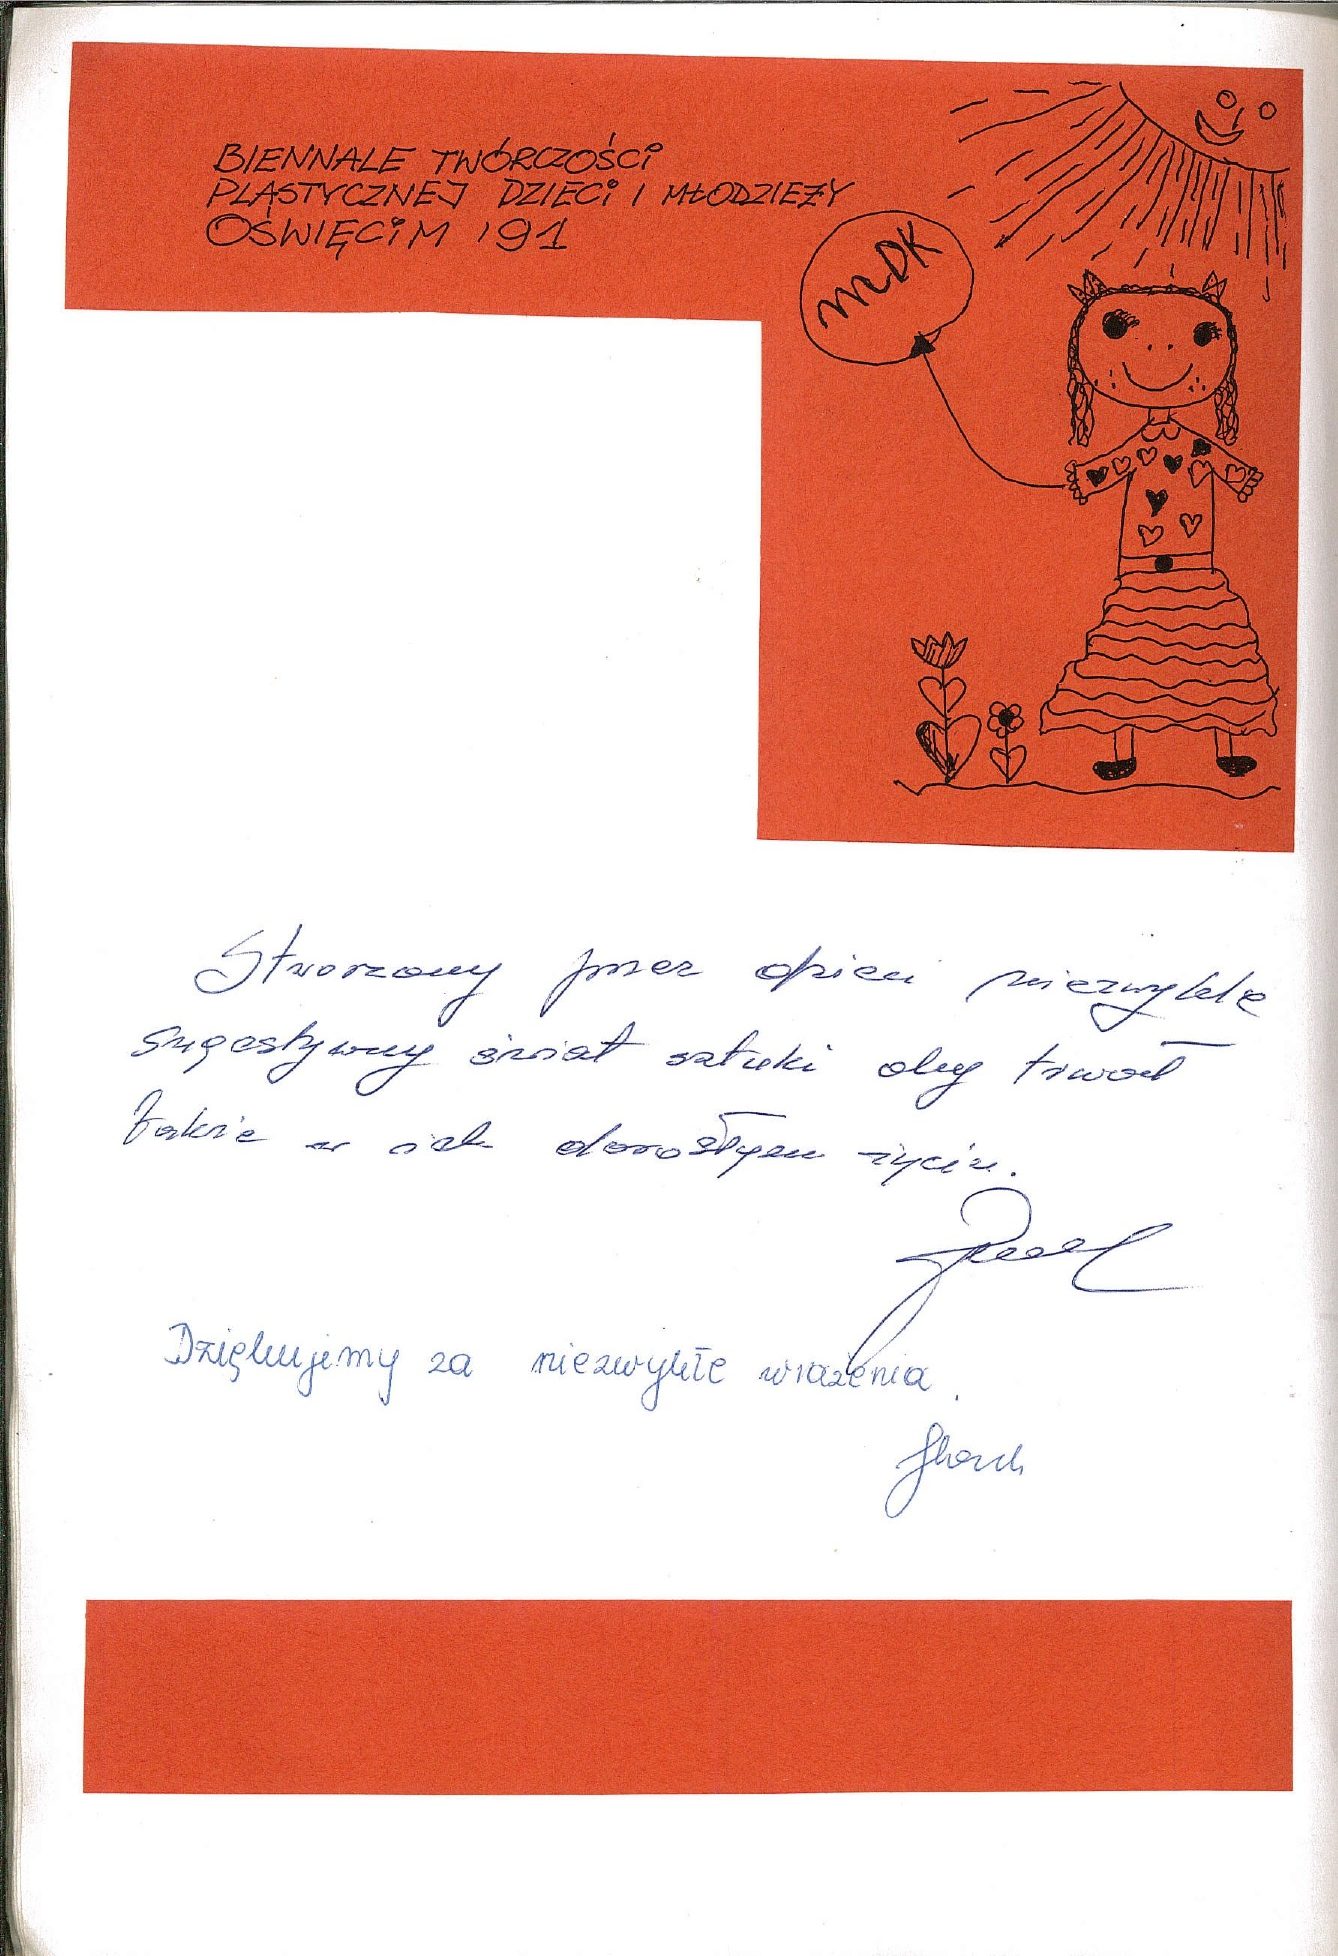 BIENNALE TWÓRCZOŚCI
PLASTYCZNEJ DZIECI I MŁODZIEŻY
OŚWIĘCIM '91
MDK
Stworzony przez dzieci niezwykle
sugestywny świat sztuki oby trwał
także w ich dorosłym życiu.
Dziękujemy za niezwykłe wrażenia.